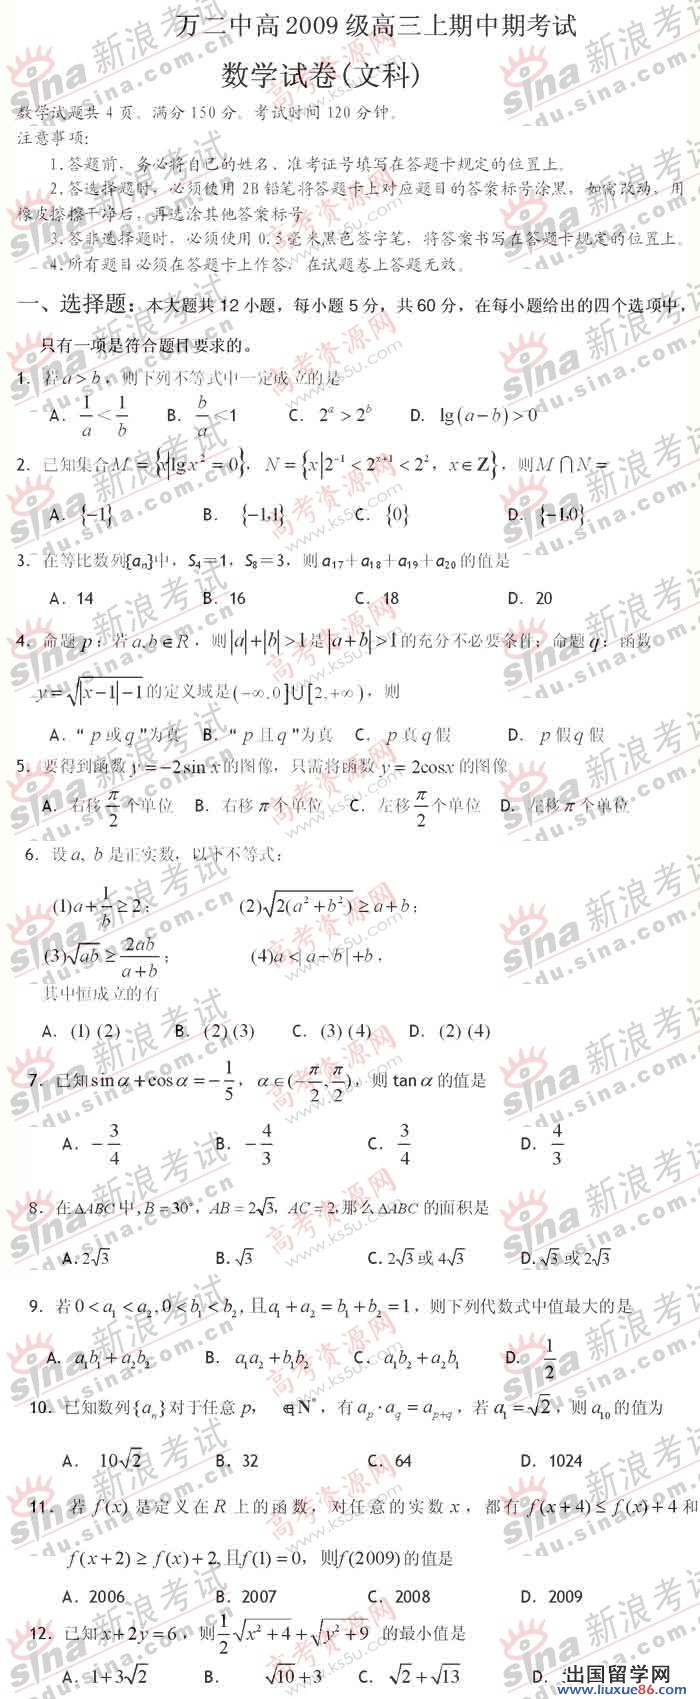 万二中高2009级高三上期中期考试
数学试卷(文科)
数学试题共4页。满分150分。考试时间120分钟。
注意事项:
1.答题前，务必将自己的姓名、准考证号填写在答题卡规定的位置上。
2.答选择题时，必须使用2B铅笔将答题卡上对应题目的答案标号涂黑，如需改动，用
橡皮擦擦干净后，再选涂其他答案标号
3.答非选择题时，必须使用0.5毫米黑色签字笔，将答案书写在答题卡规定的位置上。
4.所有题目必须在答题卡上作答，在试题卷上答题无效。
一、选择题：本大题共12小题，每小题5分，共60分，在每小题给出的四个选项中，
只有一项是符合题目要求的。
1. 若a>b，则下列不等式中一定成立的是
A. 1/a<1/b B. b/a<1 C. 2^a>2^b D. lg(a-b)>0
2. 已知集合M={x|lgx²=0}, N={x|2⁻¹<2^(x+1)<2², x∈Z}，则M∩N=
A. {-1} B. {-1,1} C. {0} D. {-1,0}
3. 在等比数列{aₙ}中，S₄=1，S₈=3，则a₁₇+a₁₈+a₁₉+a₂₀的值是
A. 14 B. 16 C. 18 D. 20
4. 命题p：若a,b∈R，则|a|+|b|>1是|a+b|>1的充分不必要条件；命题q：函数
y=√(|x-1|-1)的定义域是(-∞,0]∪[2,+∞)，则
A. “p或q”为真 B. “p且q”为真 C. p真q假 D. p假q假
5. 要得到函数y=-2sinx的图像，只需将函数y=2cosx的图像
A. 右移π/2个单位 B. 右移π个单位 C. 左移π/2个单位 D. 左移π个单位
6. 设a, b是正实数，以下不等式：
(1)a+1/b≥2; (2)√(2(a²+b²))≥a+b;
(3)√(ab)≥2ab/(a+b); (4)a<|a-b|+b,
其中恒成立的有
A. (1) (2) B. (2) (3) C. (3) (4) D. (2) (4)
7. 已知sinα+cosα=-1/5，α∈(-π/2,π/2)，则tanα的值是
A. -3/4 B. -4/3 C. 3/4 D. 4/3
8. 在△ABC中,B=30°, AB=2√3, AC=2,那么△ABC的面积是
A. 2√3 B. √3 C. 2√3或4√3 D. √3或2√3
9. 若0<a₁<a₂,0<b₁<b₂,且a₁+a₂=b₁+b₂=1，则下列代数式中值最大的是
A. a₁b₁+a₂b₂ B. a₁a₂+b₁b₂ C. a₁b₂+a₂b₁ D. 1/2
10. 已知数列{aₙ}对于任意p, q∈N*，有a_p·a_q=a_(p+q)，若a₁=√2，则a₁₀的值为
A. 10√2 B. 32 C. 64 D. 1024
11. 若f(x)是定义在R上的函数，对任意的实数x，都有f(x+4)≤f(x)+4和
f(x+2)≥f(x)+2,且f(1)=0，则f(2009)的值是
A. 2006 B. 2007 C. 2008 D. 2009
12. 已知x+2y=6，则1/2√(x²+4)+√(y²+9)的最小值是
A. 1+3√2 B. √10+3 C. √2+√13 D.
sina 新浪考试
edu.sina.com.cn
高考资源网
www.ks5u.com
出国留学网
www.liuxue86.com